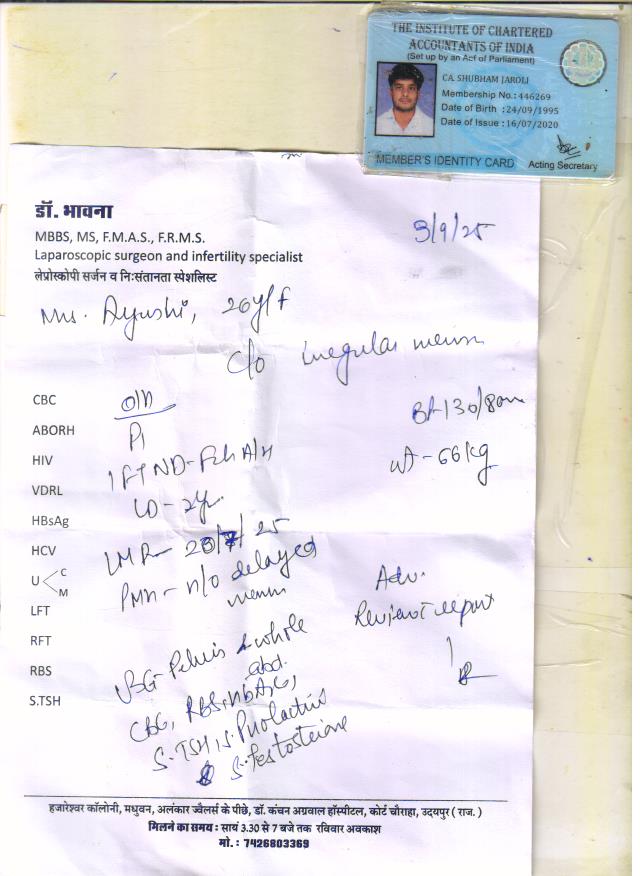 THE INSTITUTE OF CHARTERED
ACCOUNTANTS OF INDIA
(Set up by an Act of Parliament)
CA. SHUBHAM JAROLI
Membership No.: 446269
Date of Birth : 24/09/1995
Date of Issue : 16/07/2020
MEMBER'S IDENTITY CARD
Acting Secretary
डॉ. भावना
3/9/25
MBBS, MS, F.M.A.S., F.R.M.S.
Laparoscopic surgeon and infertility specialist
लेप्रोस्कोपी सर्जन व निःसंतानता स्पेशलिस्ट
Mrs. Ayushi, 26y/f
c/o Irregular mens
CBC
O/H
BP-130/80mm
ABORH
P1
HIV
1 FTND- Fch A/H
wt-66kg
VDRL
LD-2yr.
HBsAg
HCV
LMP- 23/7/25
U < C M
PMH- n/o delayed
mens
Adv.
LFT
Review c report
RFT
USG-Pelvis & whole
abd.
RBS
CBC, RBS, HbA1C,
S.TSH
S.TSH, S.Prolactin
S.Testosterone
हजारेश्वर कॉलोनी, मधुवन, अलंकार ज्वैलर्स के पीछे, डॉ. कंचन अग्रवाल हॉस्पीटल, कोर्ट चौराहा, उदयपुर ( राज. )
मिलने का समय : सायं 3.30 से 7 बजे तक रविवार अवकाश
मो. : 7426803369